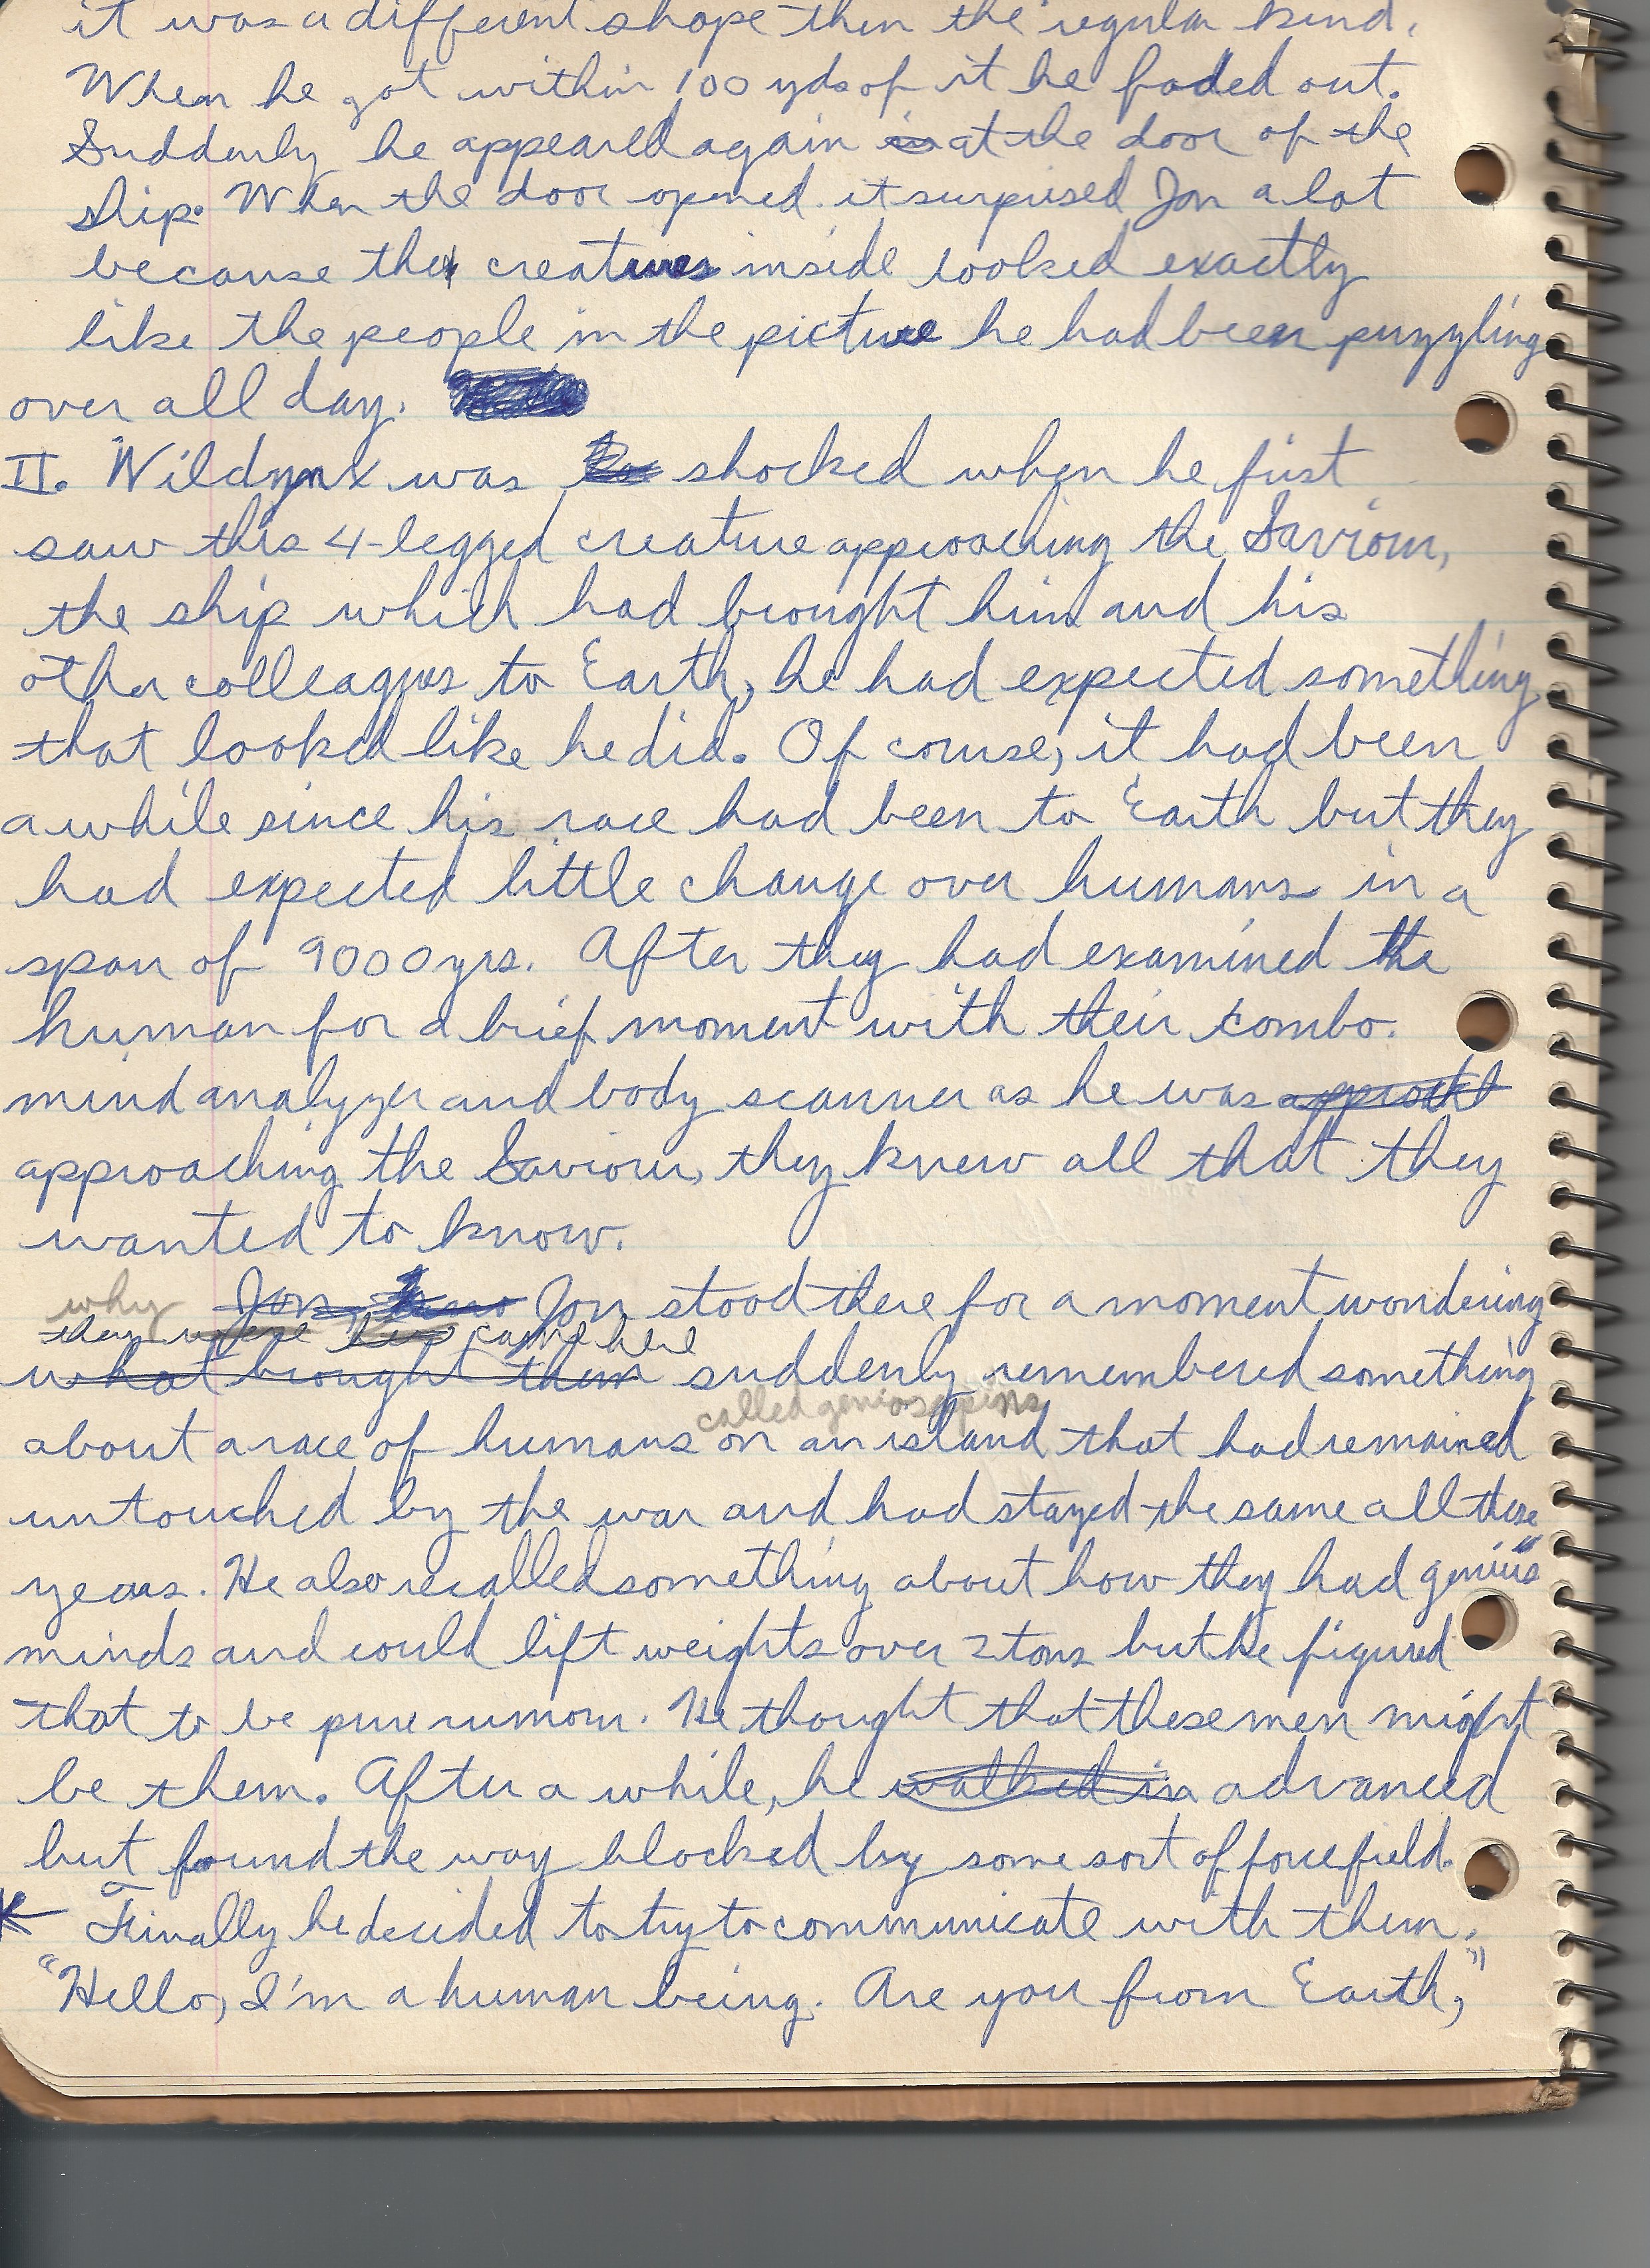 it was a different shape then the regular kind.
When he got within 100 yds of it he faded out.
Suddenly he appeared again in at the door of the
ship. When the door opened it surprised Jon a lot
because the creatures inside looked exactly
like the people in the picture he had been puzzling
over all day.
II. Wildynx was shocked when he first
saw this 4-legged creature approaching the Saviour,
the ship which had brought him and his
other colleagues to Earth, he had expected something
that looked like he did. Of course, it had been
awhile since his race had been to Earth but they
had expected little change over humans in a
span of 9000 yrs. After they had examined the
human for a brief moment with their combo.
mind analyzer and body scanner as he was approacht
approaching the Saviour, they knew all that they
wanted to know.
why Jon, Jon stood there for a moment wondering
they were came here
what brought them suddenly remembered something
called geniosapins
about a race of humans on an island that had remained
untouched by the war and had stayed the same all these
years. He also recalled something about how they had "genius"
minds and could lift weights over 2 tons but he figured
that to be pure rumour. He thought that these men might
be them. After a while, he walked in advanced
but found the way blocked by some sort of forcefield.
Finally he decided to try to communicate with them.
"Hello, I'm a human being. Are you from Earth,"